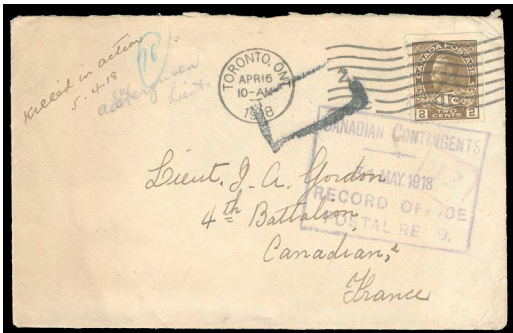 Killed in action
5.4.18
Lieut.
TORONTO, ONT.
APR 16
10-AM
1918
CANADA POSTAGE
2 TWO CENTS 2
CANADIAN CONTINGENTS
MAY. 1918
RECORD OFFICE
POSTAL
Lieut. J. A. Gordon
4th Battalion,
Canadian,
France